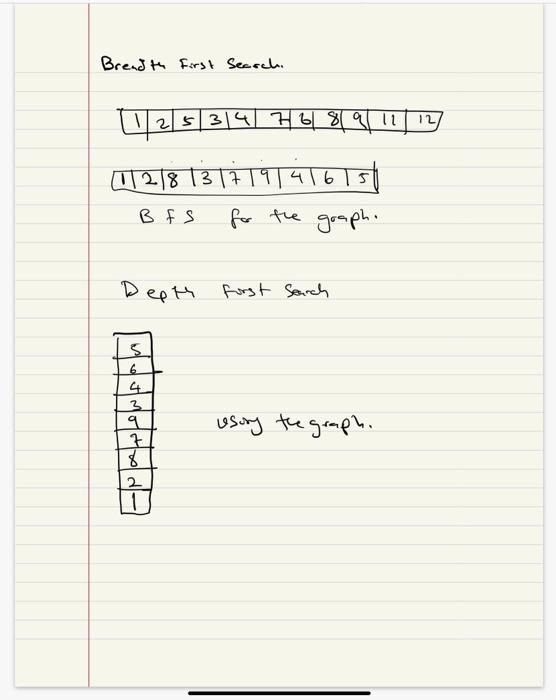 Breadth First Search.
1 2 5 3 4 7 6 8 9 11 12
1 2 8 3 7 9 4 6 5
BFS for the graph.
Depth First Search
5
6
4
3
9 using the graph.
7
8
2
1